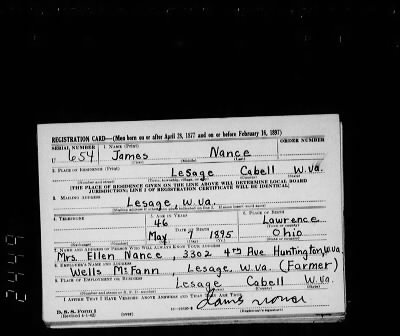 REGISTRATION CARD—(Men born on or after April 28, 1877 and on or before February 16, 1897)
SERIAL NUMBER 1. NAME (Print) ORDER NUMBER
U 654 James Nance
(First) (Middle) (Last)
2. PLACE OF RESIDENCE (Print)
LeSage Cabell W.Va.
[THE PLACE OF RESIDENCE GIVEN ON THE LINE ABOVE WILL DETERMINE LOCAL BOARD
JURISDICTION; LINE 2 OF REGISTRATION CERTIFICATE WILL BE IDENTICAL]
3. MAILING ADDRESS
Lesage, W.Va.
4. TELEPHONE 5. AGE IN YEARS 6. PLACE OF BIRTH
46 Lawrence
DATE OF BIRTH
May 7 1895 Ohio
7. NAME AND ADDRESS OF PERSON WHO WILL ALWAYS KNOW YOUR ADDRESS
Mrs. Ellen Nance, 3302 4th Ave Huntington, W.Va.
8. EMPLOYER'S NAME AND ADDRESS
Wells McFann, Lesage, W.Va. (Farmer)
9. PLACE OF EMPLOYMENT OR BUSINESS
Lesage Cabell W.Va.
I AFFIRM THAT I HAVE VERIFIED ABOVE ANSWERS AND THAT THEY ARE TRUE.
D. S. S. Form 1
(Revised 4-1-42) (over)
2449